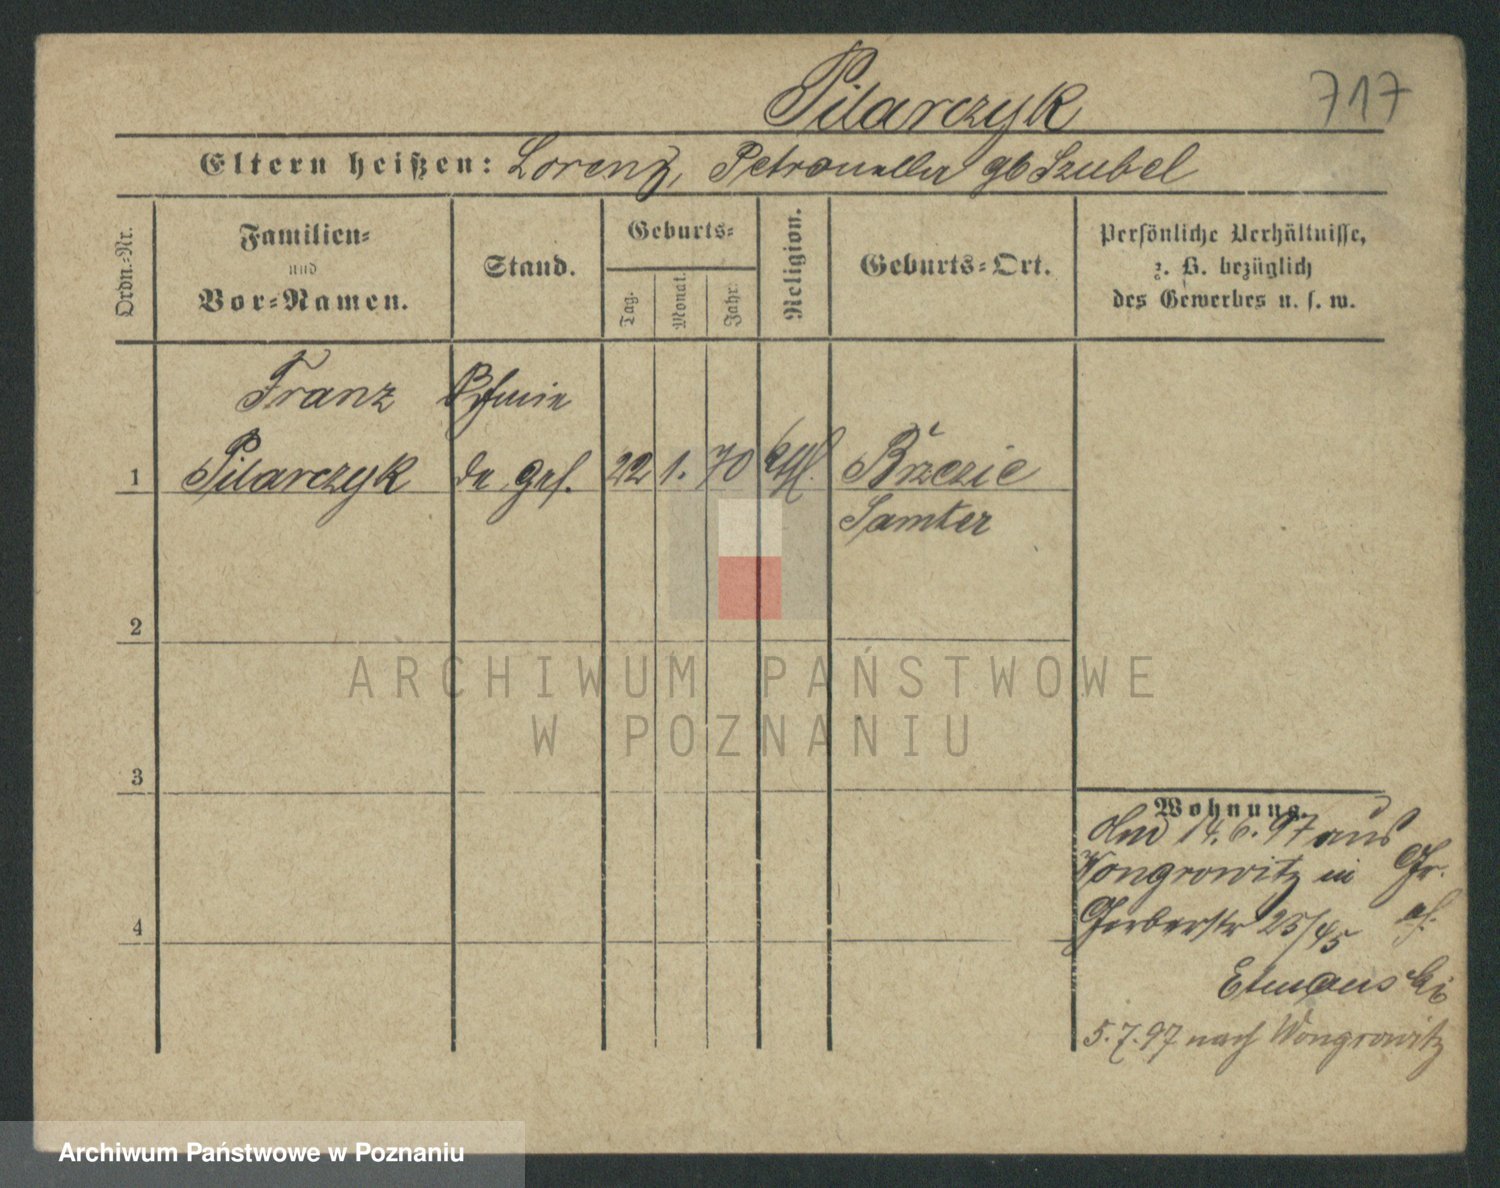 717
Pilarczyk
Eltern heißen: Lorenz, Petronella gb Szubel
Ordn.-Nr.
Familien-
und
Vor-Namen.
Stand.
Geburts-
Tag.
Monat.
Jahr.
Religion.
Geburts-Ort.
Persönliche Verhältnisse,
z. B. bezüglich
des Gewerbes u. s. w.
Franz Schmie
1 Pilarczyk de ges. 22 1. 70 kthl. Brzezie
Samter
2
3
4
ARCHIWUM PAŃSTWOWE
W POZNANIU
Wohnung.
14.6.97 aus
Wongrowitz in Gr.
Gerberstr 25/45
Etmanski
5.7.97 nach Wongrowitz
Archiwum Państwowe w Poznaniu